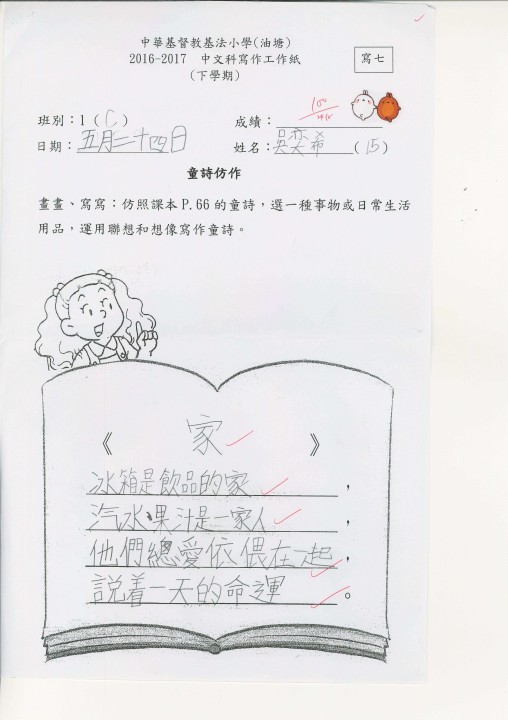 中華基督教基法小學(油塘)
2016-2017 中文科寫作工作紙
(下學期)
寫七
班別：1 ( C )
成績：100
日期：五月二十四日
姓名：吳奕希 ( 15 )
童詩仿作
畫畫、寫寫：仿照課本P.66的童詩，選一種事物或日常生活
用品，運用聯想和想像寫作童詩。
《 家 》
冰箱是飲品的家，
汽水、果汁是一家人，
他們總愛依偎在一起，
說着一天的命運。